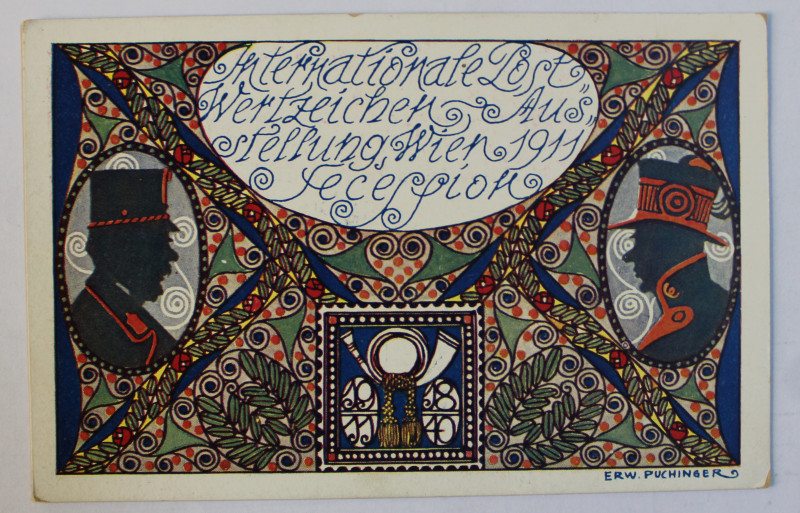 Internationale Post„
Wertzeichen Aus„
stellung Wien 1911
Secession
19 18
11 40
ERW. PUCHINGER